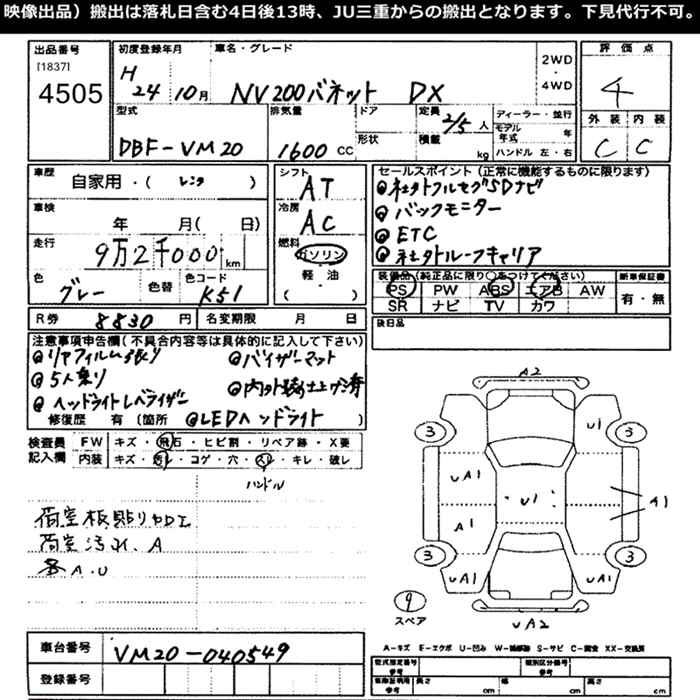 映像出品）搬出は落札日含む4日後13時、JU三重からの搬出となります。下見代行不可。
出品番号
[1837]
4505
初度登録年月
H
24 10月
車名・グレード
NV200バネット DX
2WD
・
4WD
評価点
4
外装 内装
C C
型式
DBF-VM20
排気量
1600 CC
ドア
形状
定員 2/5 人
積載 kg
ディーラー・並行
モデル年式 年
ハンドル 左・右
車歴
自家用・( レンタ )
車検
年 月( 日)
走行
9万2千000 km
色
グレー
色替
色コード
K51
シフト
AT
冷房
AC
燃料
ガソリン
・
軽・油
( )
セールスポイント（正常に機能するものに限ります）
@社外フルセグSDナビ
@バックモニター
@ETC
@社外ルーフキャリア
装備品（純正品に限り○をつけてください）
PS PW ABS エアB AW
SR ナビ TV カワ
新車保証書
有・無
後日品
R券 8830 円
名変期限 月 日
注意事項申告欄（不具合内容等は具体的に記入して下さい）
@リアフィルム張り @バイザーマット
@5人乗り @内外装仕上げ済
@ヘッドライトレベライザー
修復歴 有〔箇所 @LEDヘッドライト 〕
検査員記入欄
FW キズ・飛石・ヒビ割・リペア跡・X要
内装 キズ・汚レ・コゲ・穴・スレ・キレ・破レ
ハンドル
荷室板貼り加工
荷室汚れ、A
各A.U
A2
3
U1
3
UA1
A1
U1
A1
3
UA1
UA1
3
UA2
9
スペア
A-キズ E-エクボ U-凹み W-補修跡 S-サビ C-腐食 XX-交換済
車台番号
VM20-040549
登録番号
型式指定番号
参考
類別区分番号
参考
長さ cm
幅 cm
高さ cm